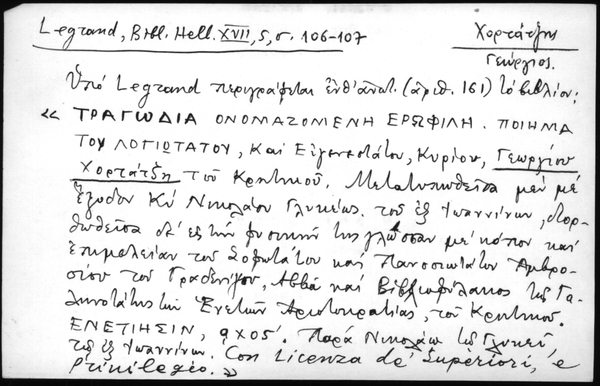 Legrand, Bibl. Hell. XVII, 5, σ. 106-107
Χορτάτζης
Γεώργιος.
Ὑπὸ Legrand περιγράφεται ἐνθ' ἀνωτ. (ἀριθ. 161) τὸ βιβλίον:
« ΤΡΑΓΩΔΙΑ ΟΝΟΜΑΖΟΜΕΝΗ ΕΡΩΦΙΛΗ. ΠΟΙΗΜΑ
ΤΟΥ ΛΟΓΙΩΤΑΤΟΥ, Καὶ Εὐγενεστάτου, Κυρίου, Γεωργίου
Χορτάτζη τοῦ Κρητικοῦ. Μετατυπωθεῖσα μὲν μὲ
ἔξοδον Κὺ Νικολάου Γλυκέως. τοῦ ἐξ Ἰωαννίνων, διορ-
θωθεῖσα δὲ εἰς τὴν φυσικήν της γλῶσσαν μὲ κόπον καὶ
ἐπιμέλειαν τοῦ Σοφωτάτου καὶ Πανοσιωτάτου Ἀμβρο-
σίου τοῦ Γραδενίγου, Ἀββᾶ καὶ Βιβλιοφύλακος τῆς Γα-
ληνοτάτης τῶν Ἐνετῶν Ἀριστοκρατίας, τοῦ Κρητικοῦ.
ΕΝΕΤΙΗΣΙΝ, ͵αχος΄. Παρὰ Νικολάῳ τῷ Γλυκεῖ
τῷ ἐξ Ἰωαννίνων. Con Licenza de' Superiori, e
Privilegio. »